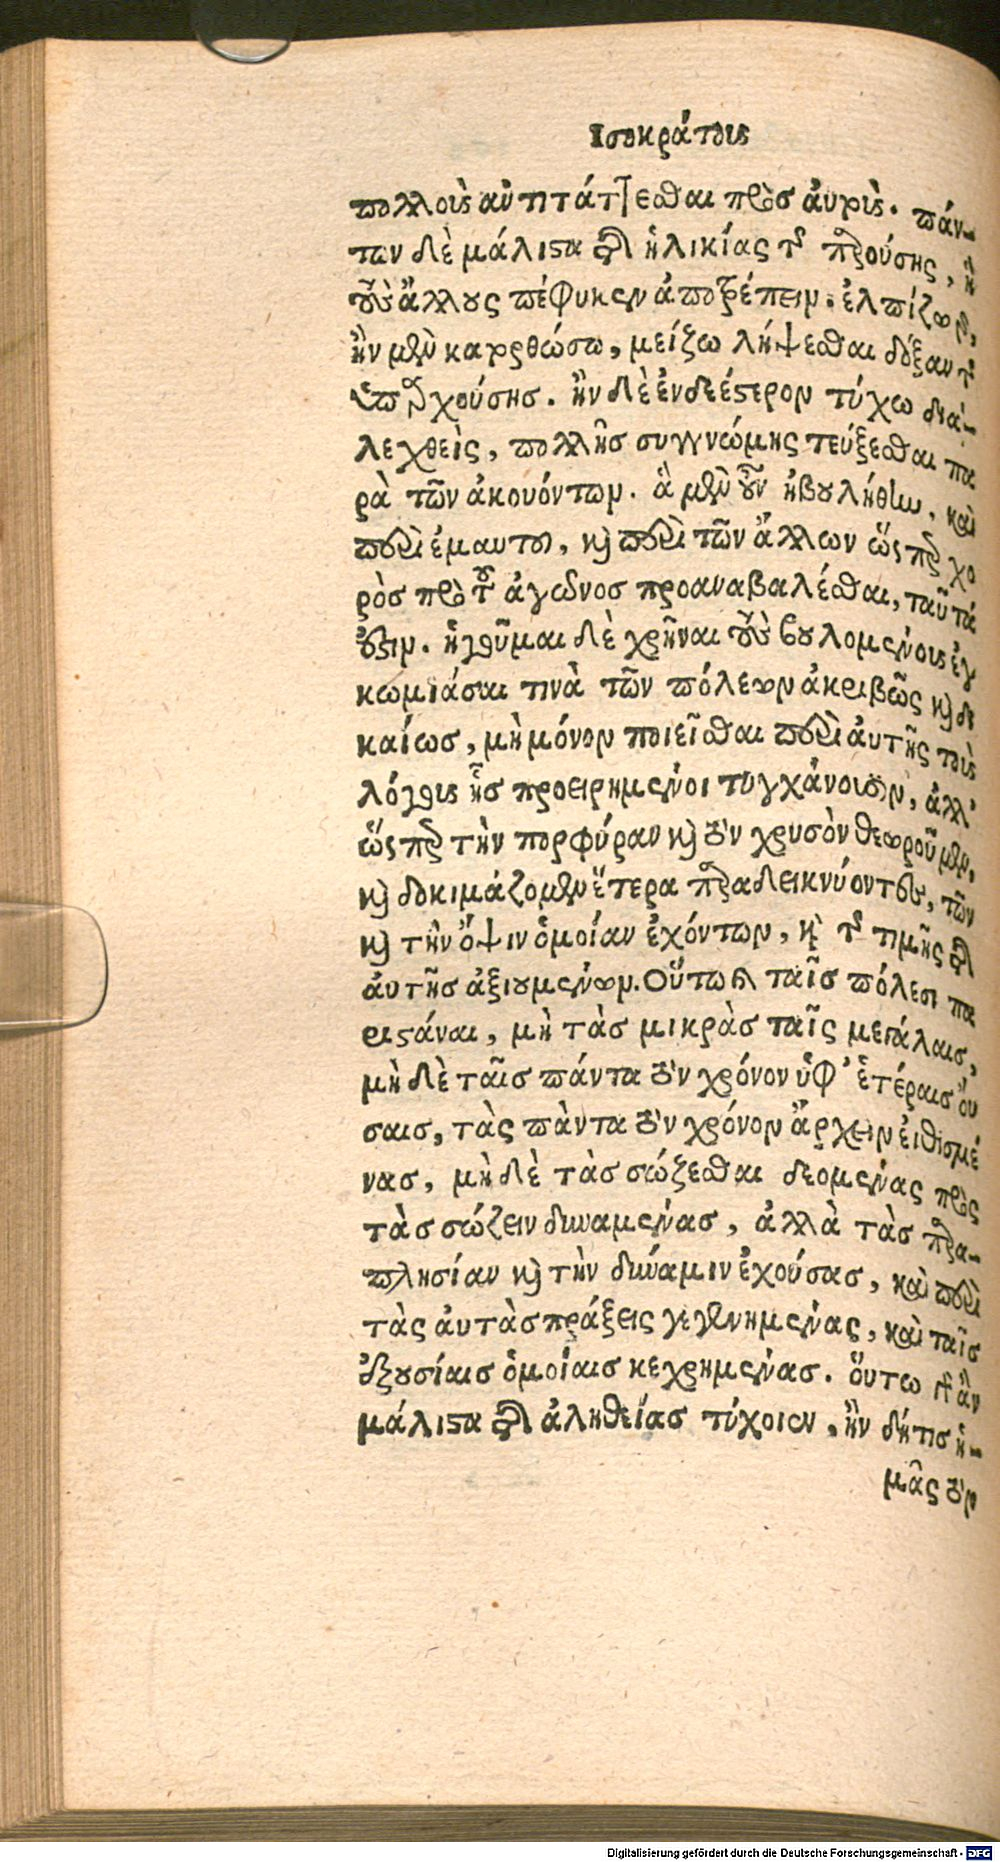 Ισοκράτους
πολλοὺς ἀντιτάττεσθαι πρὸς ἀυτούς. πάν-
των δὲ μάλιστα διὰ ἡλικίας τῆς παρούσης, ἣ
τοὺς ἄλλους πέφυκεν ἀποτρέπειν. ἐλπίζων,
ἢν μὲν κατορθώσω, μείζω λήψεσθαι δόξαν τῆς
ὑπαρχούσης. ἢν δὲ ἐνδεέστερον τύχω δια-
λεχθεὶς, πολλῆς συγγνώμης τεύξεσθαι πα
ρὰ τῶν ἀκουόντων. ἃ μὲν οὖν ἠβουλήθην, καὶ
περὶ ἐμαυτοῦ, καὶ περὶ τῶν ἄλλων ὥσπερ χο
ρὸς πρὸ τοῦ ἀγῶνος προαναβαλέσθαι, ταῦτά
ἐστιν. ἡγοῦμαι δὲ χρῆναι τοὺς βουλομένους ἐγ
κωμιάσαι τινὰ τῶν πόλεων ἀκριβῶς καὶ δι
καίως, μὴ μόνον ποιεῖσθαι περὶ ἀυτῆς τοὺς
λόγους ἧς προειρημένοι τυγχάνουσιν, ἀλλ’
ὥσπερ τὴν πορφύραν καὶ τὸν χρυσὸν θεωροῦμεν,
καὶ δοκιμάζομεν ἕτερα παραδεικνύοντες, τῶν
καὶ τὴν ὄψιν ὁμοίαν ἐχόντων, καὶ τῆς τιμῆς τῆς
ἀυτῆς ἀξιουμένων. Οὕτω δὲ ταῖς πόλεσι πα
ριστάναι, μὴ τὰς μικρὰς ταῖς μεγάλαις,
μὴ δὲ ταῖς πάντα τὸν χρόνον ὑφ’ ἑτέραις οὔ
σαις, τὰς πάντα τὸν χρόνον ἄρχειν ἐιθισμέ
νας, μὴ δὲ τὰς σώζεσθαι δεομένας πρὸς
τὰς σώζειν δυναμένας, ἀλλὰ τὰς παρα-
πλησίαν καὶ τὴν δύναμιν ἐχούσας, καὶ περὶ
τὰς ἀυτὰς πράξεις γεγενημένας, καὶ ταῖς
ἐξουσίαις ὁμοίαις κεχρημένας. ὅυτω γὰρ ἂν
μάλιστα τῆς ἀληθείας τύχοιεν, ἢν δήτις ἡ-
μᾶς τὸν
Digitalisierung gefördert durch die Deutsche Forschungsgemeinschaft - DFG